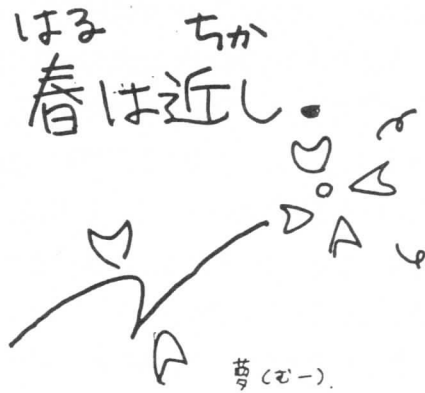 はる ちか
春は近し.
夢(むー).